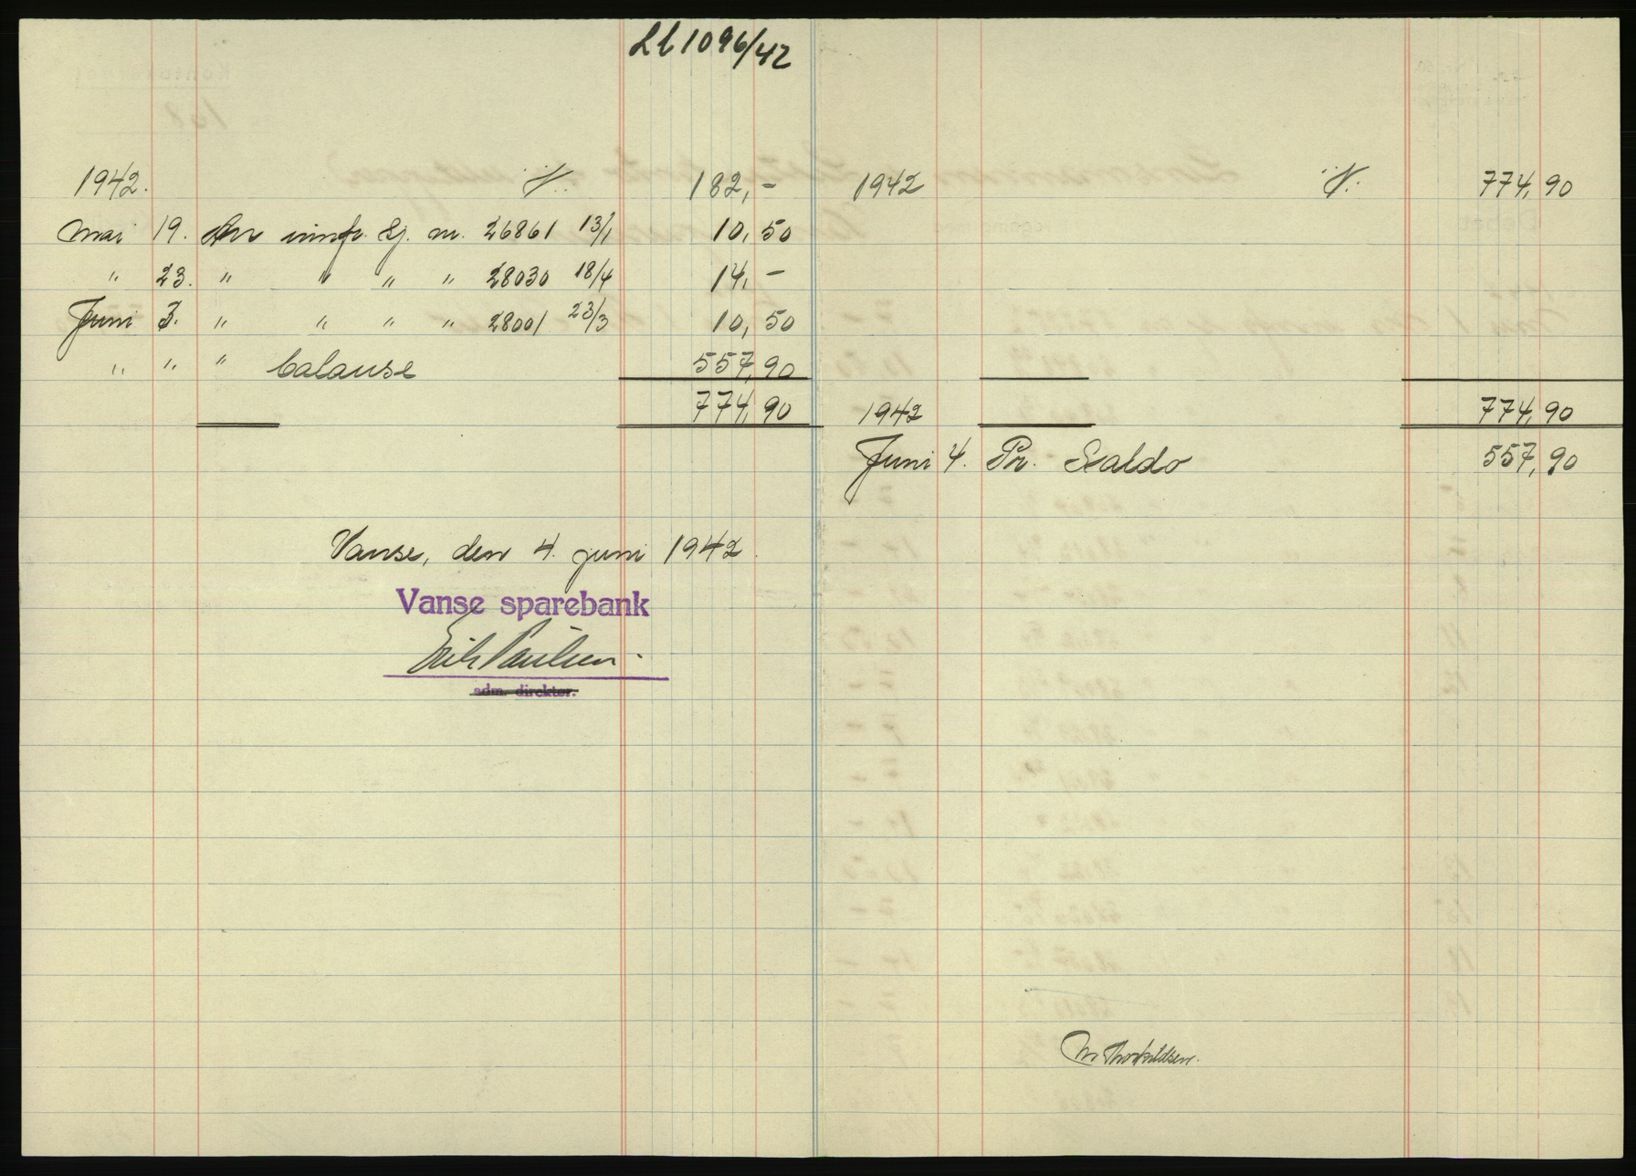 Lb 1096/42
1942. 182,-
Mai 19. An innfr. Gj. nr. 26861 13/1 10,50
" 23. " " " " 28030 18/4 14,-
Juni 3. " " " " 28001 23/3 10,50
" " " balanse 557,90
774,90
1942 774,90
1942 774,90
Juni 4. Pr. Saldo 557,90
Vanse, den 4. juni 1942.
Vanse sparebank
Erik Paulsen.
adm. direktør.
M Thorkildsen.